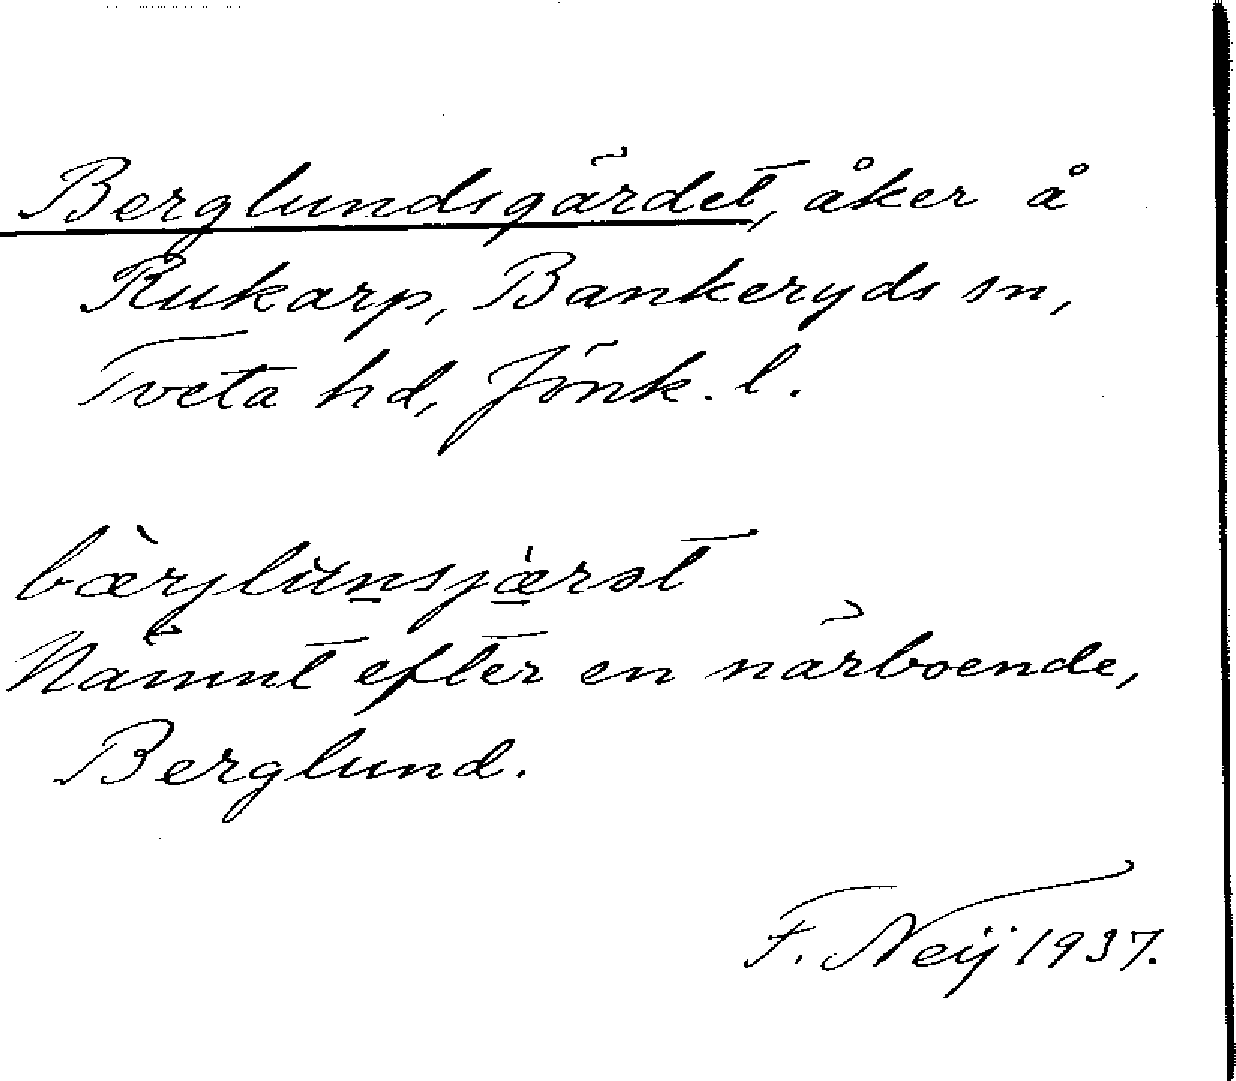 Berglundsgärdet, åker å
Rukarp, Bankeryds sn,
Tveta hd, Jönk. l.
Nämnt efter en närboende,
Berglund.
F. Neij 1937.